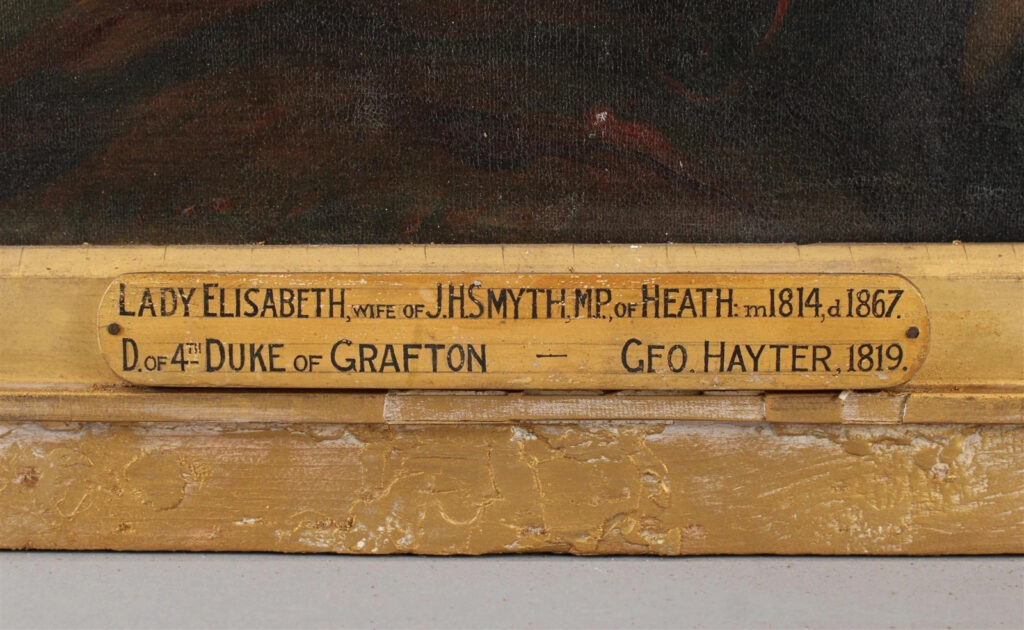 LADY ELISABETH, WIFE OF J.H SMYTH, M.P., OF HEATH: m1814, d 1867.
D. OF 4TH DUKE OF GRAFTON — GEO. HAYTER, 1819.